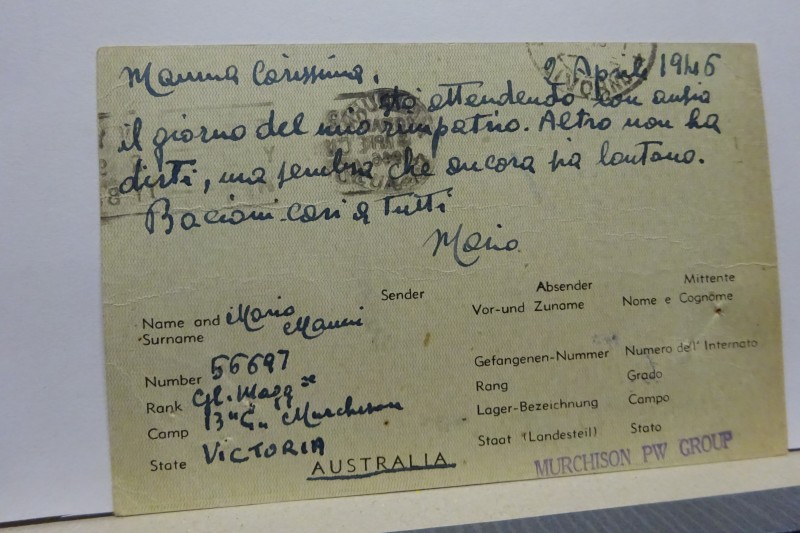 Mamma Carissima. 2 April 1946
sto attendendo con ansia
il giorno del mio rimpatrio. Altro non ha
dirti, ma sembra che ancora sia lontano.
Bacioni cari a Tutti
Mario
Sender Absender Mittente
Name and Surname Mario Vor-und Zuname Nome e Cognome
Number 56697 Gefangenen-Nummer Numero dell' Internato
Rank Rang Grado
Camp 13 Murchison Lager-Bezeichnung Campo
State VICTORIA Staat (Landesteil) Stato
AUSTRALIA
MURCHISON PW GROUP